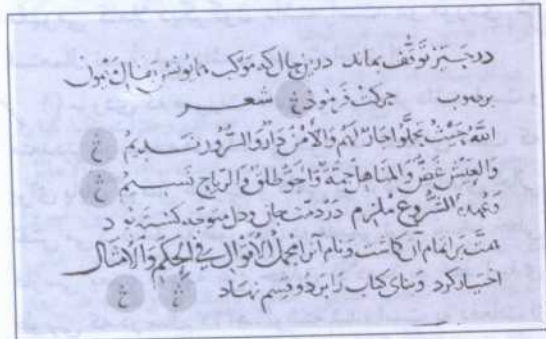 در حیّز توقّف بماند در این حال که موکب همایونش بفال میمون
بر صوب حرکت فرمود شعر
الله حیث یحلّوا جارٌ لهم والأمن دار والسّرور ندیمُ
والعیش غضّ والمناهل جمّة والجوّ طلق والریاح نسیمُ
الشّروع ملزم در ذمّت جان و دل متوجه کشته بود
همّت بر اتمام آن کماشت و نام آنرا مجمل الأقوال فی الحکم والأمثال
اختیار کرد و بنای کتاب را بر دو قسم نهاد